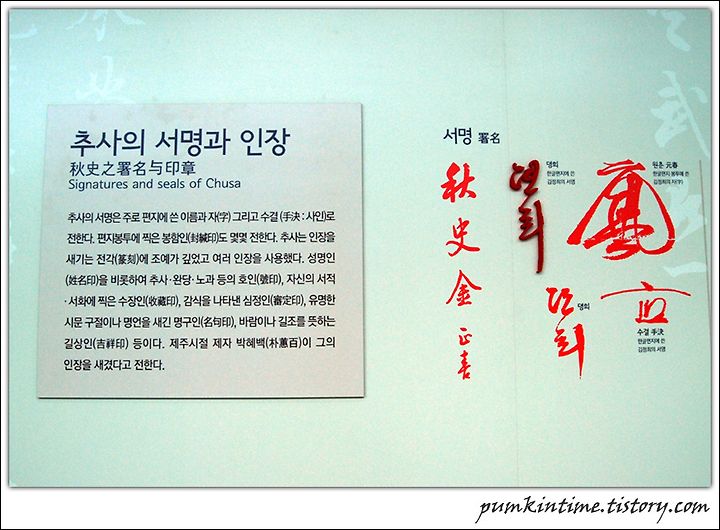 추사의 서명과 인장
秋史之署名与印章
Signatures and seals of Chusa
추사의 서명은 주로 편지에 쓴 이름과 자(字) 그리고 수결(手決 : 사인)로
전한다. 편지봉투에 찍은 봉함인(封緘印)도 몇몇 전한다. 추사는 인장을
새기는 전각(篆刻)에 조예가 깊었고 여러 인장을 사용했다. 성명인
(姓名印)을 비롯하여 추사·완당·노과 등의 호인(號印), 자신의 서적
·서화에 찍은 수장인(收藏印), 감식을 나타낸 심정인(審定印), 유명한
시문 구절이나 명언을 새긴 명구인(名句印), 바람이나 길조를 뜻하는
길상인(吉祥印) 등이다. 제주시절 제자 박혜백(朴蕙百)이 그의
인장을 새겼다고 전한다.
서명 署名
秋史金正喜
뎡희
한글편지에 쓴
김정희의 서명
뎡희
원춘 元春
한글편지 봉투에 쓴
김정희의 자(字)
수결 手決
한글편지에 쓴
김정희의 서명
pumkintime.tistory.com